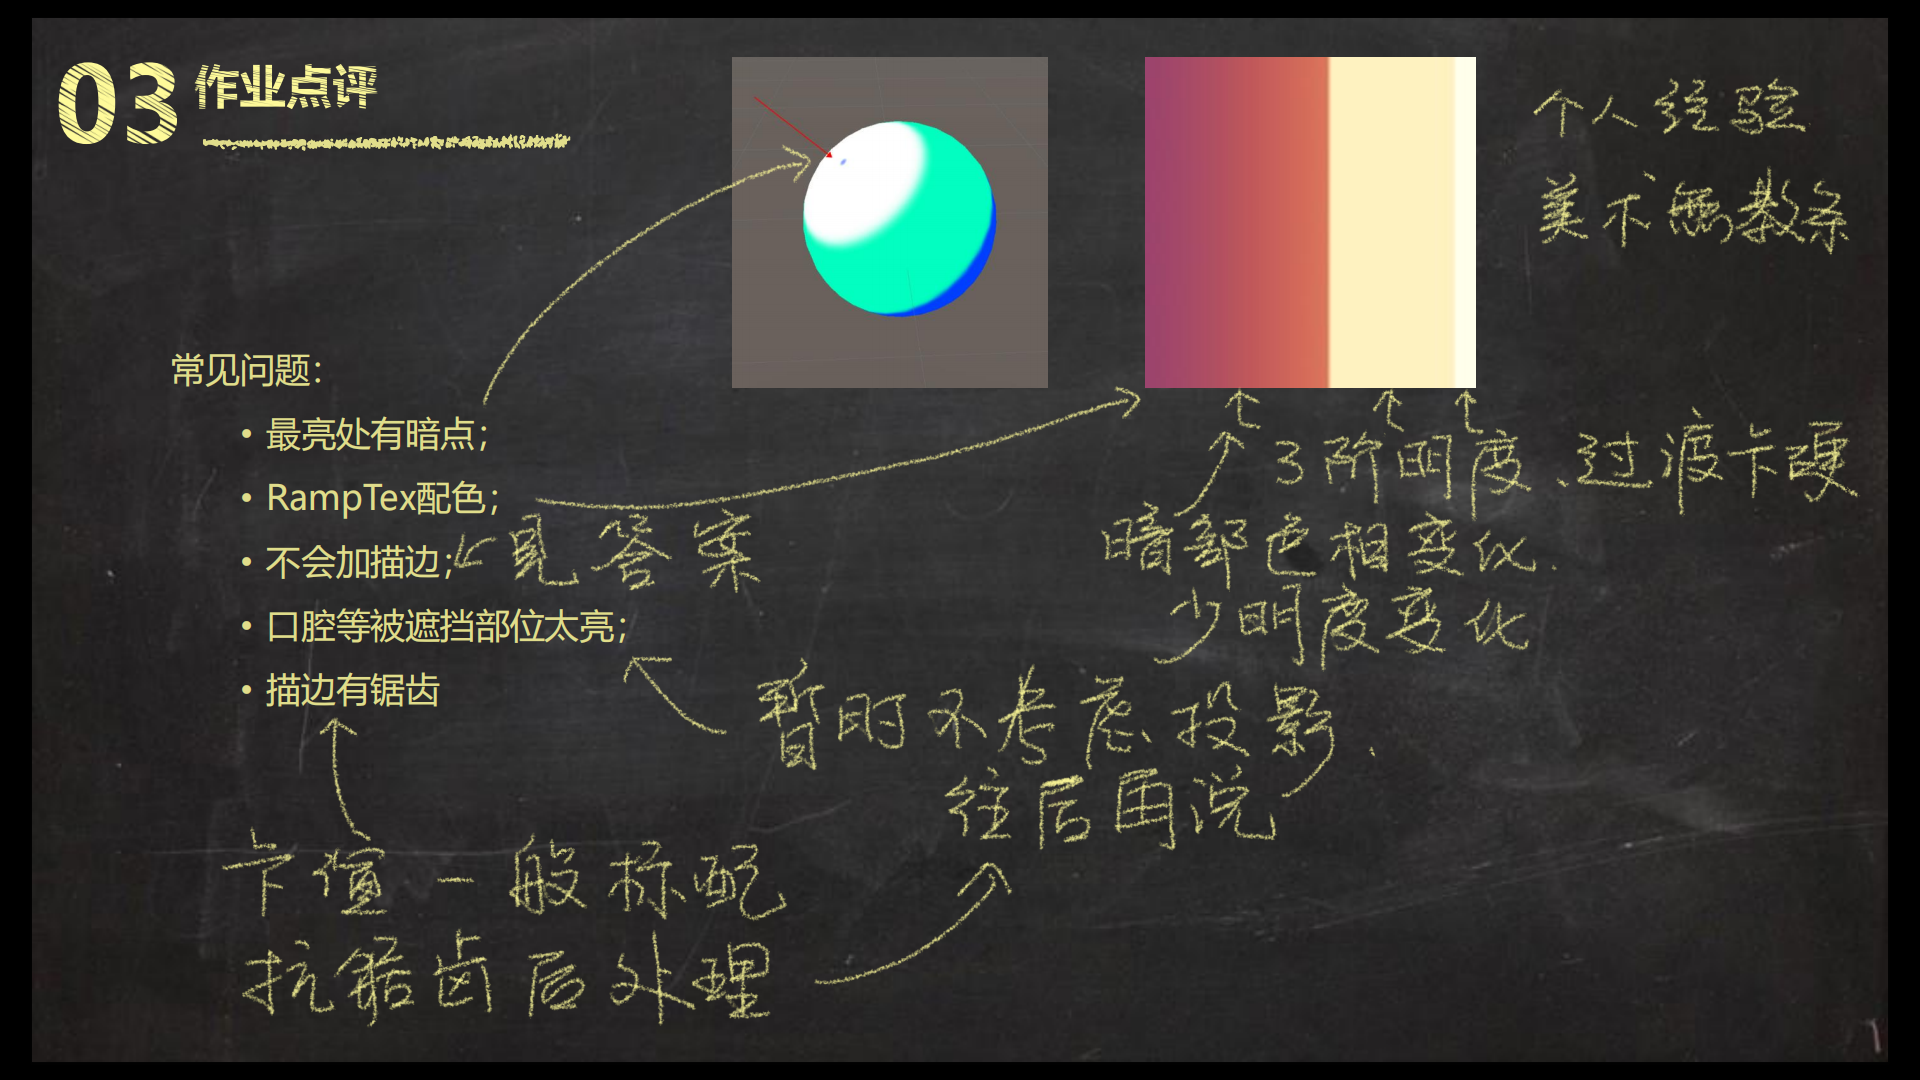 03 作业点评
个人经验
美术无教条
常见问题：
• 最亮处有暗点；
• RampTex配色；
• 不会加描边；
见答案
• 口腔等被遮挡部位太亮；
• 描边有锯齿
3阶明度、过渡卡硬
暗部色相变化.
少明度变化
暂时不考虑投影.
往后再说
卡值一般标配
抗锯齿后处理